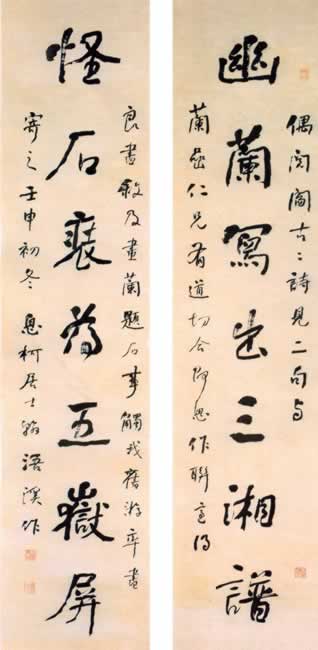 偶閱閻古〻詩見二句与
幽蘭寫出三湘譜
仁兄有道切合思作聯得
良書敘及畫蘭題石事觸我舊游率書
怪石裒為五嶽屏
寄之壬申初冬息柯居士翰浯溪作